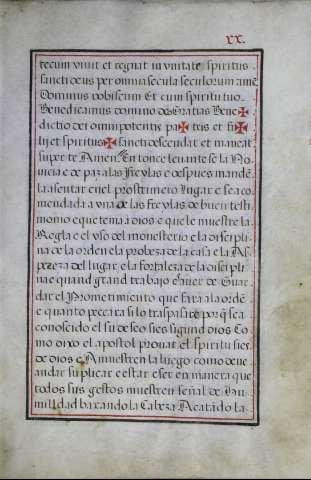 xx.
tecum vivit et regnat in unitate spiritus
sancti deus per omnia secula seculorum amē
Dominus vobiscum Et cum spiritu tuo.
Benedicamus domino deo Gratias Bene✠
dictio dei omnipotentis pa✠tris et fi✠
lij et spiritus✠sancti descēdat et maneat
super te Amen. En tonce levante se la No
vicia e de paz a las Freylas e despues mandē
la asentar en el prostrimero lugar e sea co
mendada a una de las freylas de buen testi
monio e que tema a dios e que le muestre la
Regla e el uso del monesterio e la discipli
na de la orden e la probeza de la casa e la As
preza del lugar, e la fortaleza de la discipli
na e quand grand trabajo e aver de Guar
dar el Prometimiento que fara a la ordē
e quanto pecara si lo traspasare por q̄ sea
conoscido el su deseo si es sigund dios Co
mo dixo el apostol provat el spiritu si es
de dios e Amuestren la luego como deue
andar suplicar e estar e ser en manera que
todos sus gestos muestren señal de Hu
milldad baxando la Cabeza Acatādo la